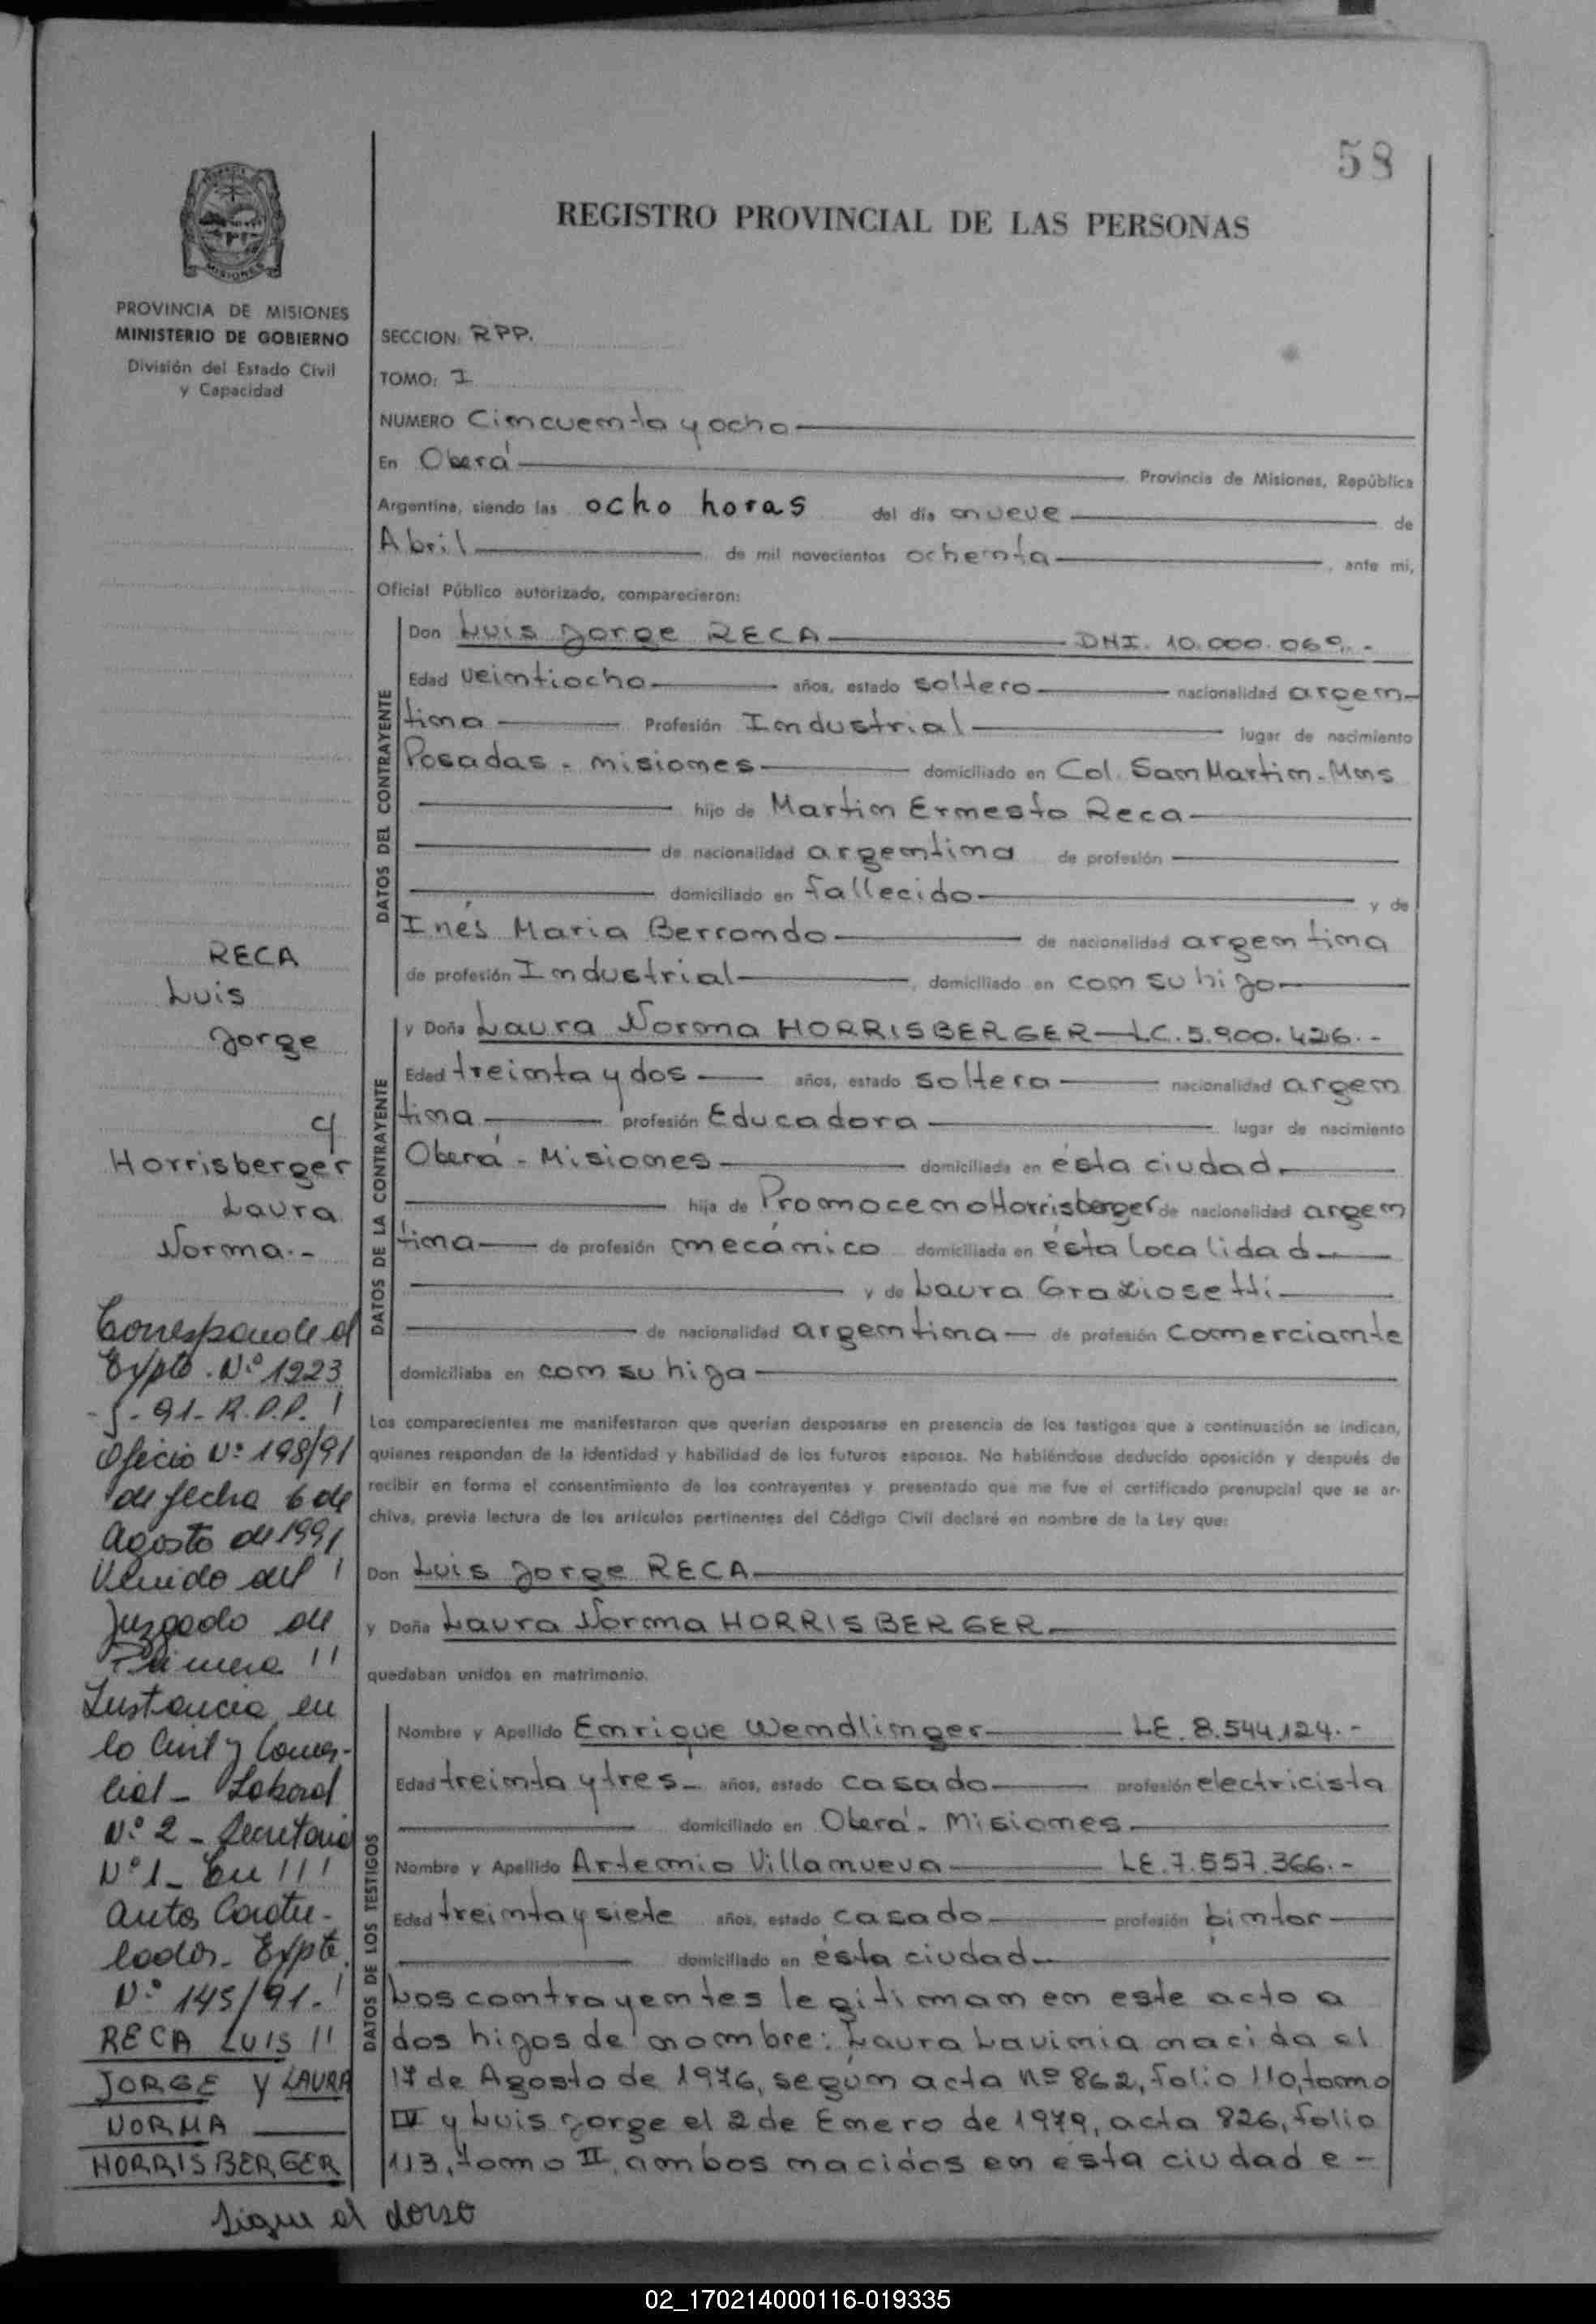 58
REGISTRO PROVINCIAL DE LAS PERSONAS
MISIONES
PROVINCIA DE MISIONES
MINISTERIO DE GOBIERNO
División del Estado Civil
y Capacidad
SECCION: RPP.
TOMO: I
NUMERO Cincuenta y ocho
En Oberá Provincia de Misiones, República
Argentina, siendo las ocho horas del día nueve de
Abril de mil novecientos ochenta, ante mi,
Oficial Público autorizado, comparecieron:
DATOS DEL CONTRAYENTE
Don Luis Jorge RECA DNI. 10.000.069.-
Edad veintiocho años, estado soltero nacionalidad argen-
tina Profesión Industrial lugar de nacimiento
Posadas - misiones domiciliado en Col. San Martin - Mns
hijo de Martin Ernesto Reca
de nacionalidad argentina de profesión
domiciliado en fallecido y de
Inés Maria Berrondo de nacionalidad argentina
de profesión Industrial, domiciliado en con su hijo
DATOS DE LA CONTRAYENTE
y Doña Laura Norma HORRISBERGER - LC. 5.900.426.-
Edad treinta y dos años, estado soltera nacionalidad argen
tina profesión Educadora lugar de nacimiento
Oberá - Misiones domiciliada en ésta ciudad
hija de Promoceno Horrisberger de nacionalidad argen
tina de profesión mecánico domiciliada en ésta localidad
y de Laura Graziosetti
de nacionalidad argentina de profesión comerciante
domiciliaba en con su hija
Los comparecientes me manifestaron que querían desposarse en presencia de los testigos que a continuación se indican,
quienes responden de la identidad y habilidad de los futuros esposos. No habiéndose deducido oposición y después de
recibir en forma el consentimiento de los contrayentes y presentado que me fue el certificado prenupcial que se ar-
chiva, previa lectura de los artículos pertinentes del Código Civil declaré en nombre de la Ley que:
Don Luis Jorge RECA
y Doña Laura Norma HORRISBERGER
quedaban unidos en matrimonio.
DATOS DE LOS TESTIGOS
Nombre y Apellido Enrique Wendlinger LE. 8.544.124.-
Edad treinta y tres años, estado casado profesión electricista
domiciliado en Oberá - Misiones
Nombre y Apellido Artemio Villanueva LE. 7.557.366.-
Edad treinta y siete años, estado casado profesión pintor
domiciliado en ésta ciudad
Los contrayentes legitiman en este acto a
dos hijos de nombre: Laura Lavinia nacida el
17 de Agosto de 1976, según acta nº 862, folio 110, tomo
IV y Luis Jorge el 2 de Enero de 1979, acta 826, folio
113, tomo II, ambos nacidos en ésta ciudad e -
RECA
Luis
Jorge
c/
Horrisberger
Laura
Norma.-
Corresponde al
Expte. Nº 1223
-J-91-R.P.P.
Oficio Nº 198/91
de fecha 6 de
Agosto de 1991
Venido del
Juzgado de
Primera
Instancia en
lo Civil y Comer-
cial - Laboral
Nº 2 - Secretaria
Nº 1 - En
autos Caratu-
lados - Expte.
Nº 145/91.-
RECA LUIS
JORGE Y LAURA
NORMA
HORRISBERGER
Sigue al dorso
02_170214000116-019335